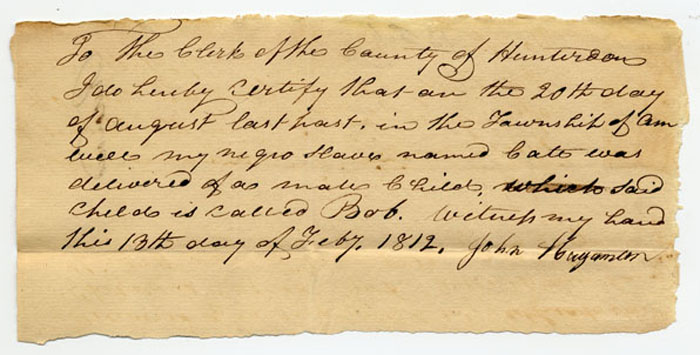 To The Clerk of the County of Hunterdon
I do hereby Certify that on the 20th day
of august last past, in the Township of Am
well my negro Slave named Cate was
delivered of a male Child, which said
Child is called Bob. Witness my hand
this 13th day of Feby. 1812. John Hagaman